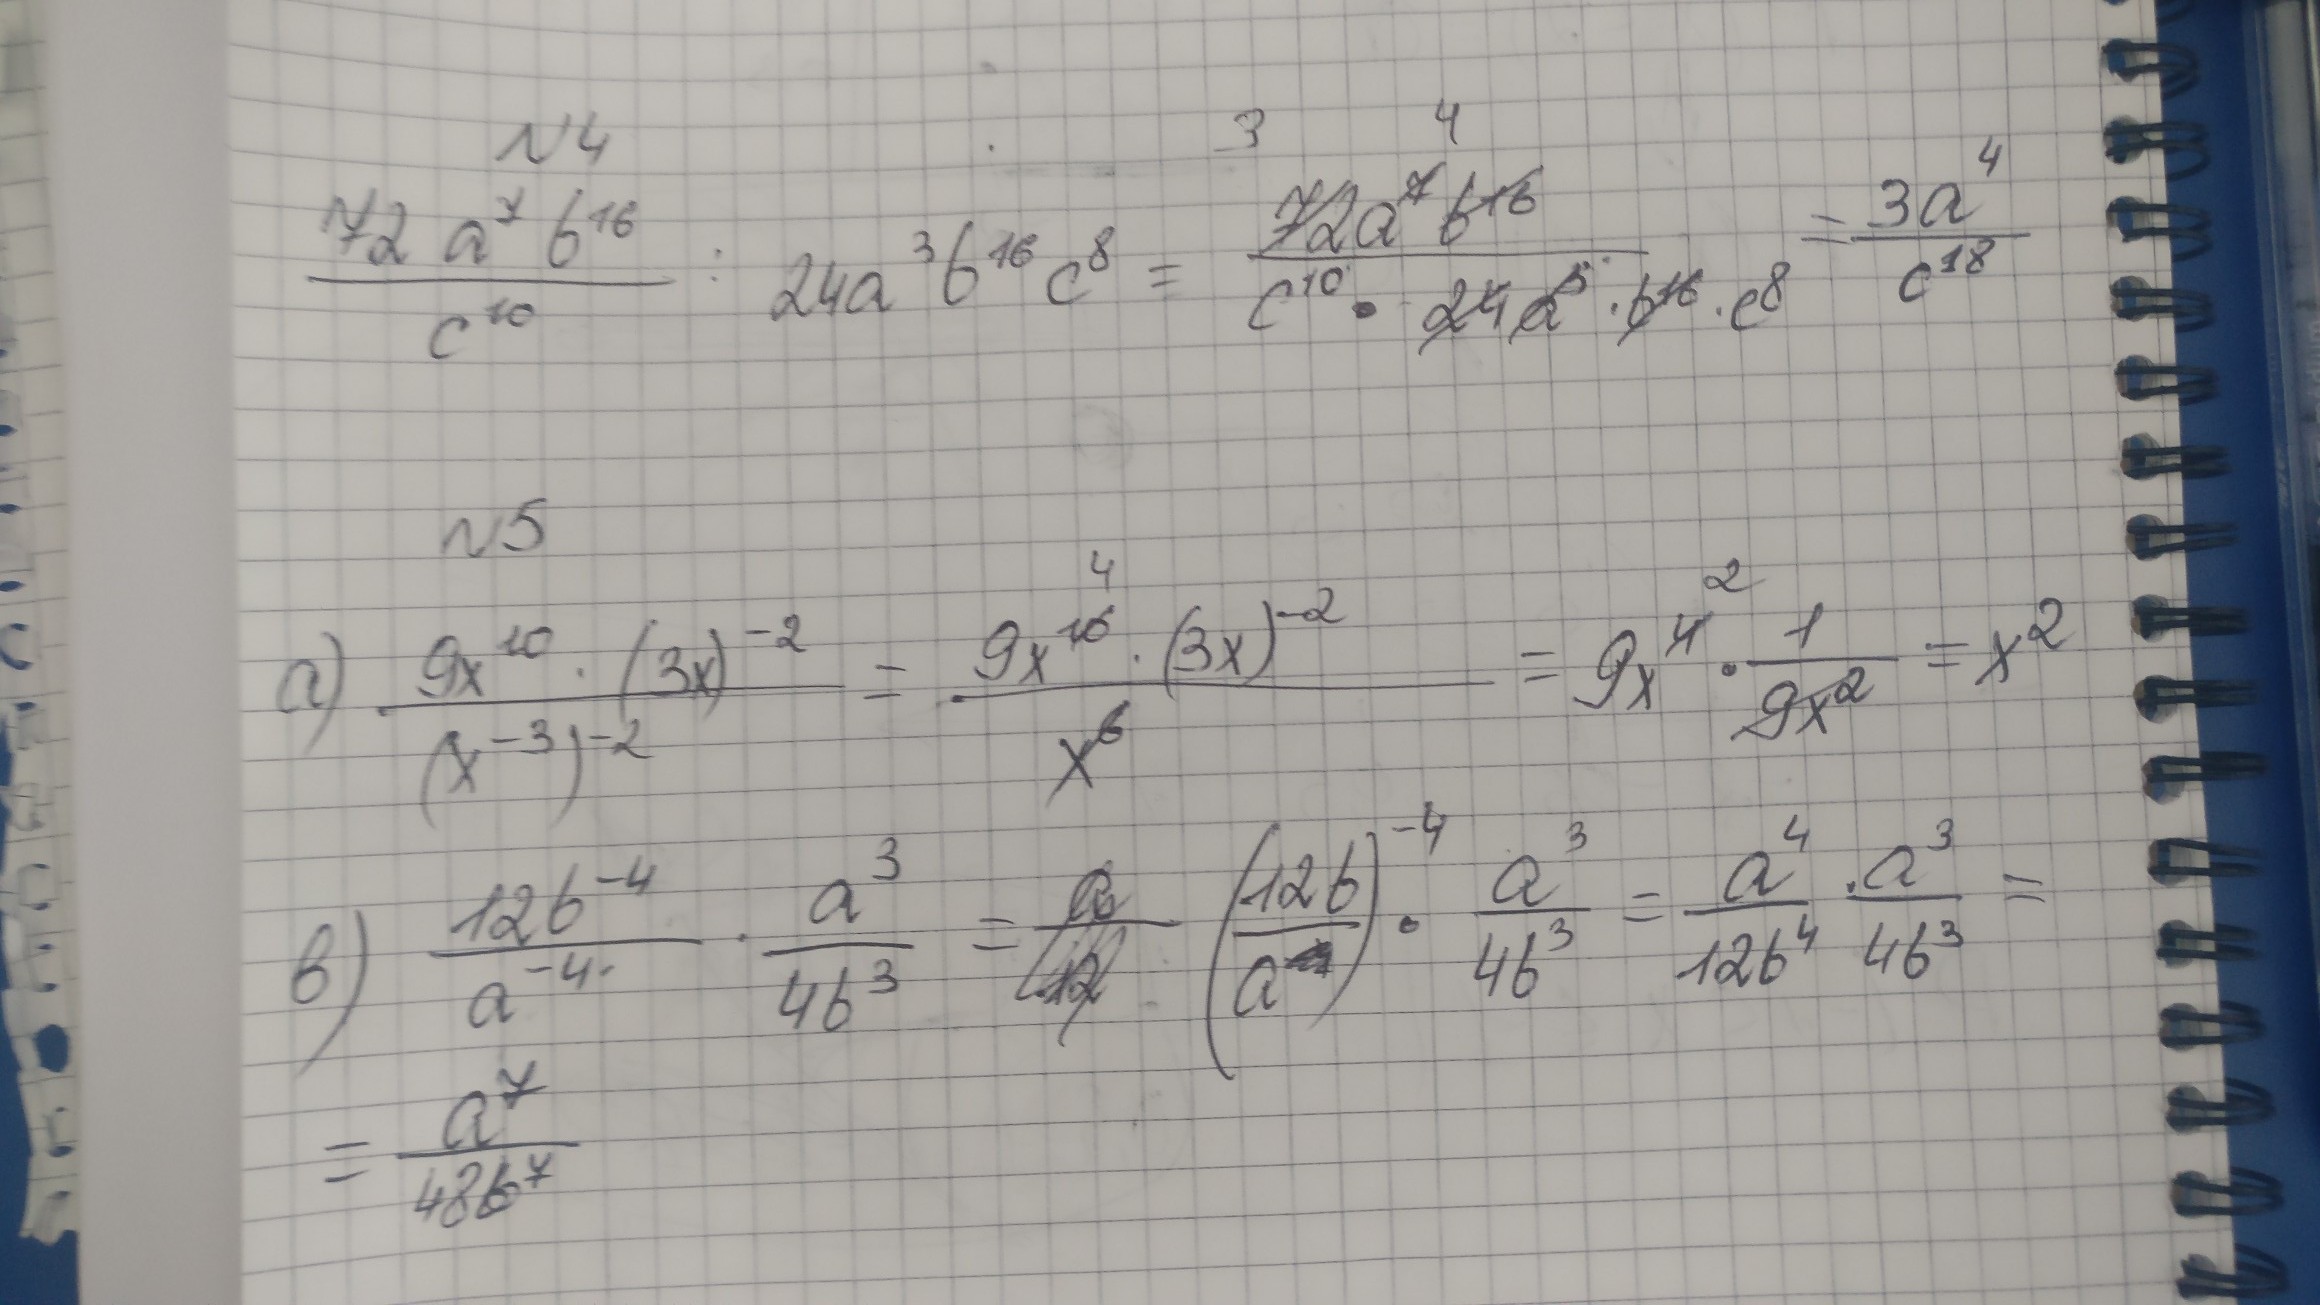 N4
72a⁷b¹⁶/c¹⁰ : 24a³b¹⁶c⁸ = 72a⁷b¹⁶/(c¹⁰ · 24a³ · b¹⁶ · c⁸) = 3a⁴/c¹⁸
N5
а) 9x¹⁰ · (3x)⁻²/(x⁻³)⁻² = 9x¹⁰ · (3x)⁻²/x⁶ = 9x⁴ · 1/9x² = x²
в) 12b⁻⁴/a⁻⁴ · a³/4b³ = (12b/a)⁻⁴ · a³/4b³ = a⁴/12b⁴ · a³/4b³ =
= a⁷/48b⁷